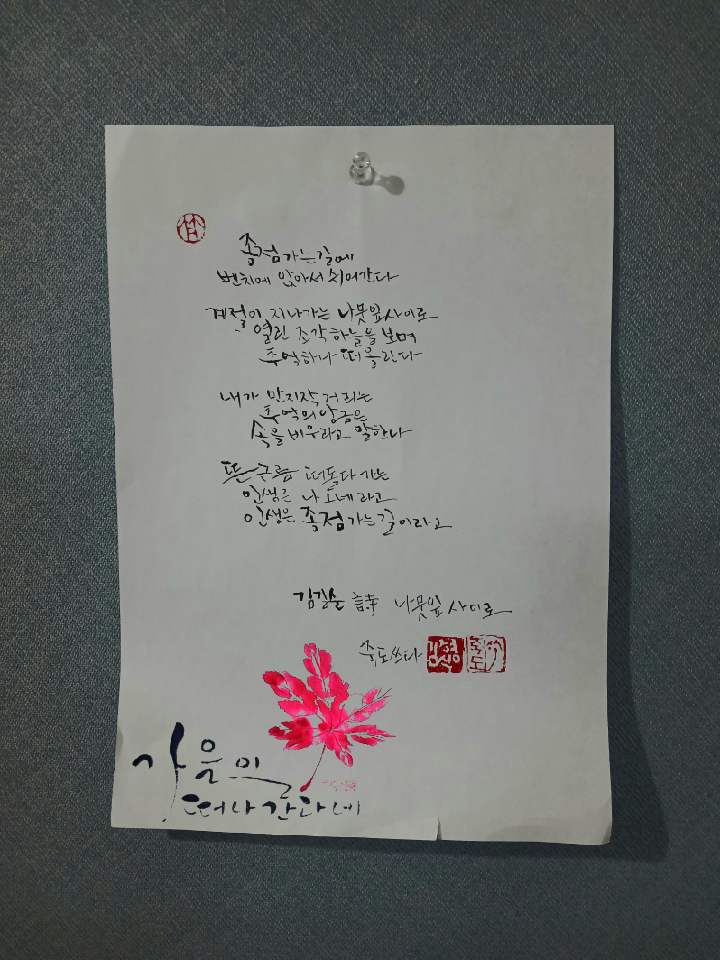 종점가는길에
벤치에 앉아서 쉬어간다
계절이 지나가는 나뭇잎사이로
열린 조각하늘을 보며
추억하나 떠올린다
내가 만지작거리는
추억의 앙금은
속을 비우라고 말한다
뜬구름 떠돌다 가는
인생은 나그네라고
인생은 종점가는길이라고
김길순 詩 나뭇잎 사이로
죽도쓰다
가을이
떠나간다네